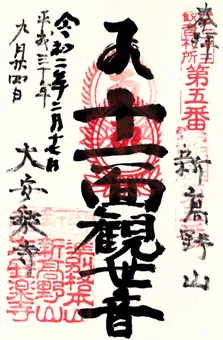 観音札所
第五番
新高野山
十一面観世音
大安楽寺
令和二年二月十七日
平成三十年
九月廿四日
準別格本山
新高野山
大安楽寺